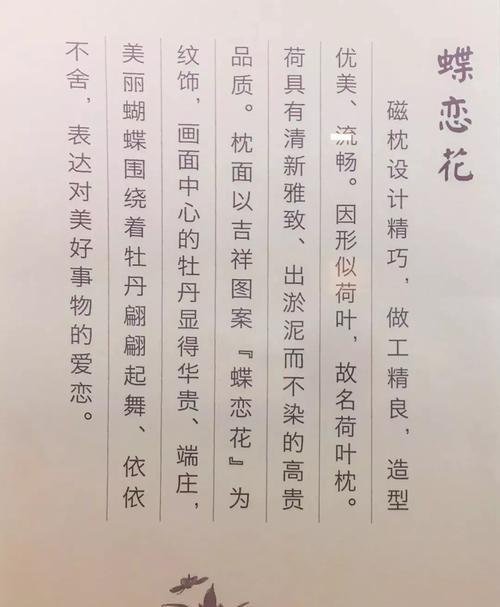 蝶恋花
磁枕设计精巧，做工精良，造型
优美、流畅。因形似荷叶，故名荷叶枕。
荷具有清新雅致、出淤泥而不染的高贵
品质。枕面以吉祥图案『蝶恋花』为
纹饰，画面中心的牡丹显得华贵、端庄，
美丽蝴蝶围绕着牡丹翩翩起舞、依依
不舍，表达对美好事物的爱恋。